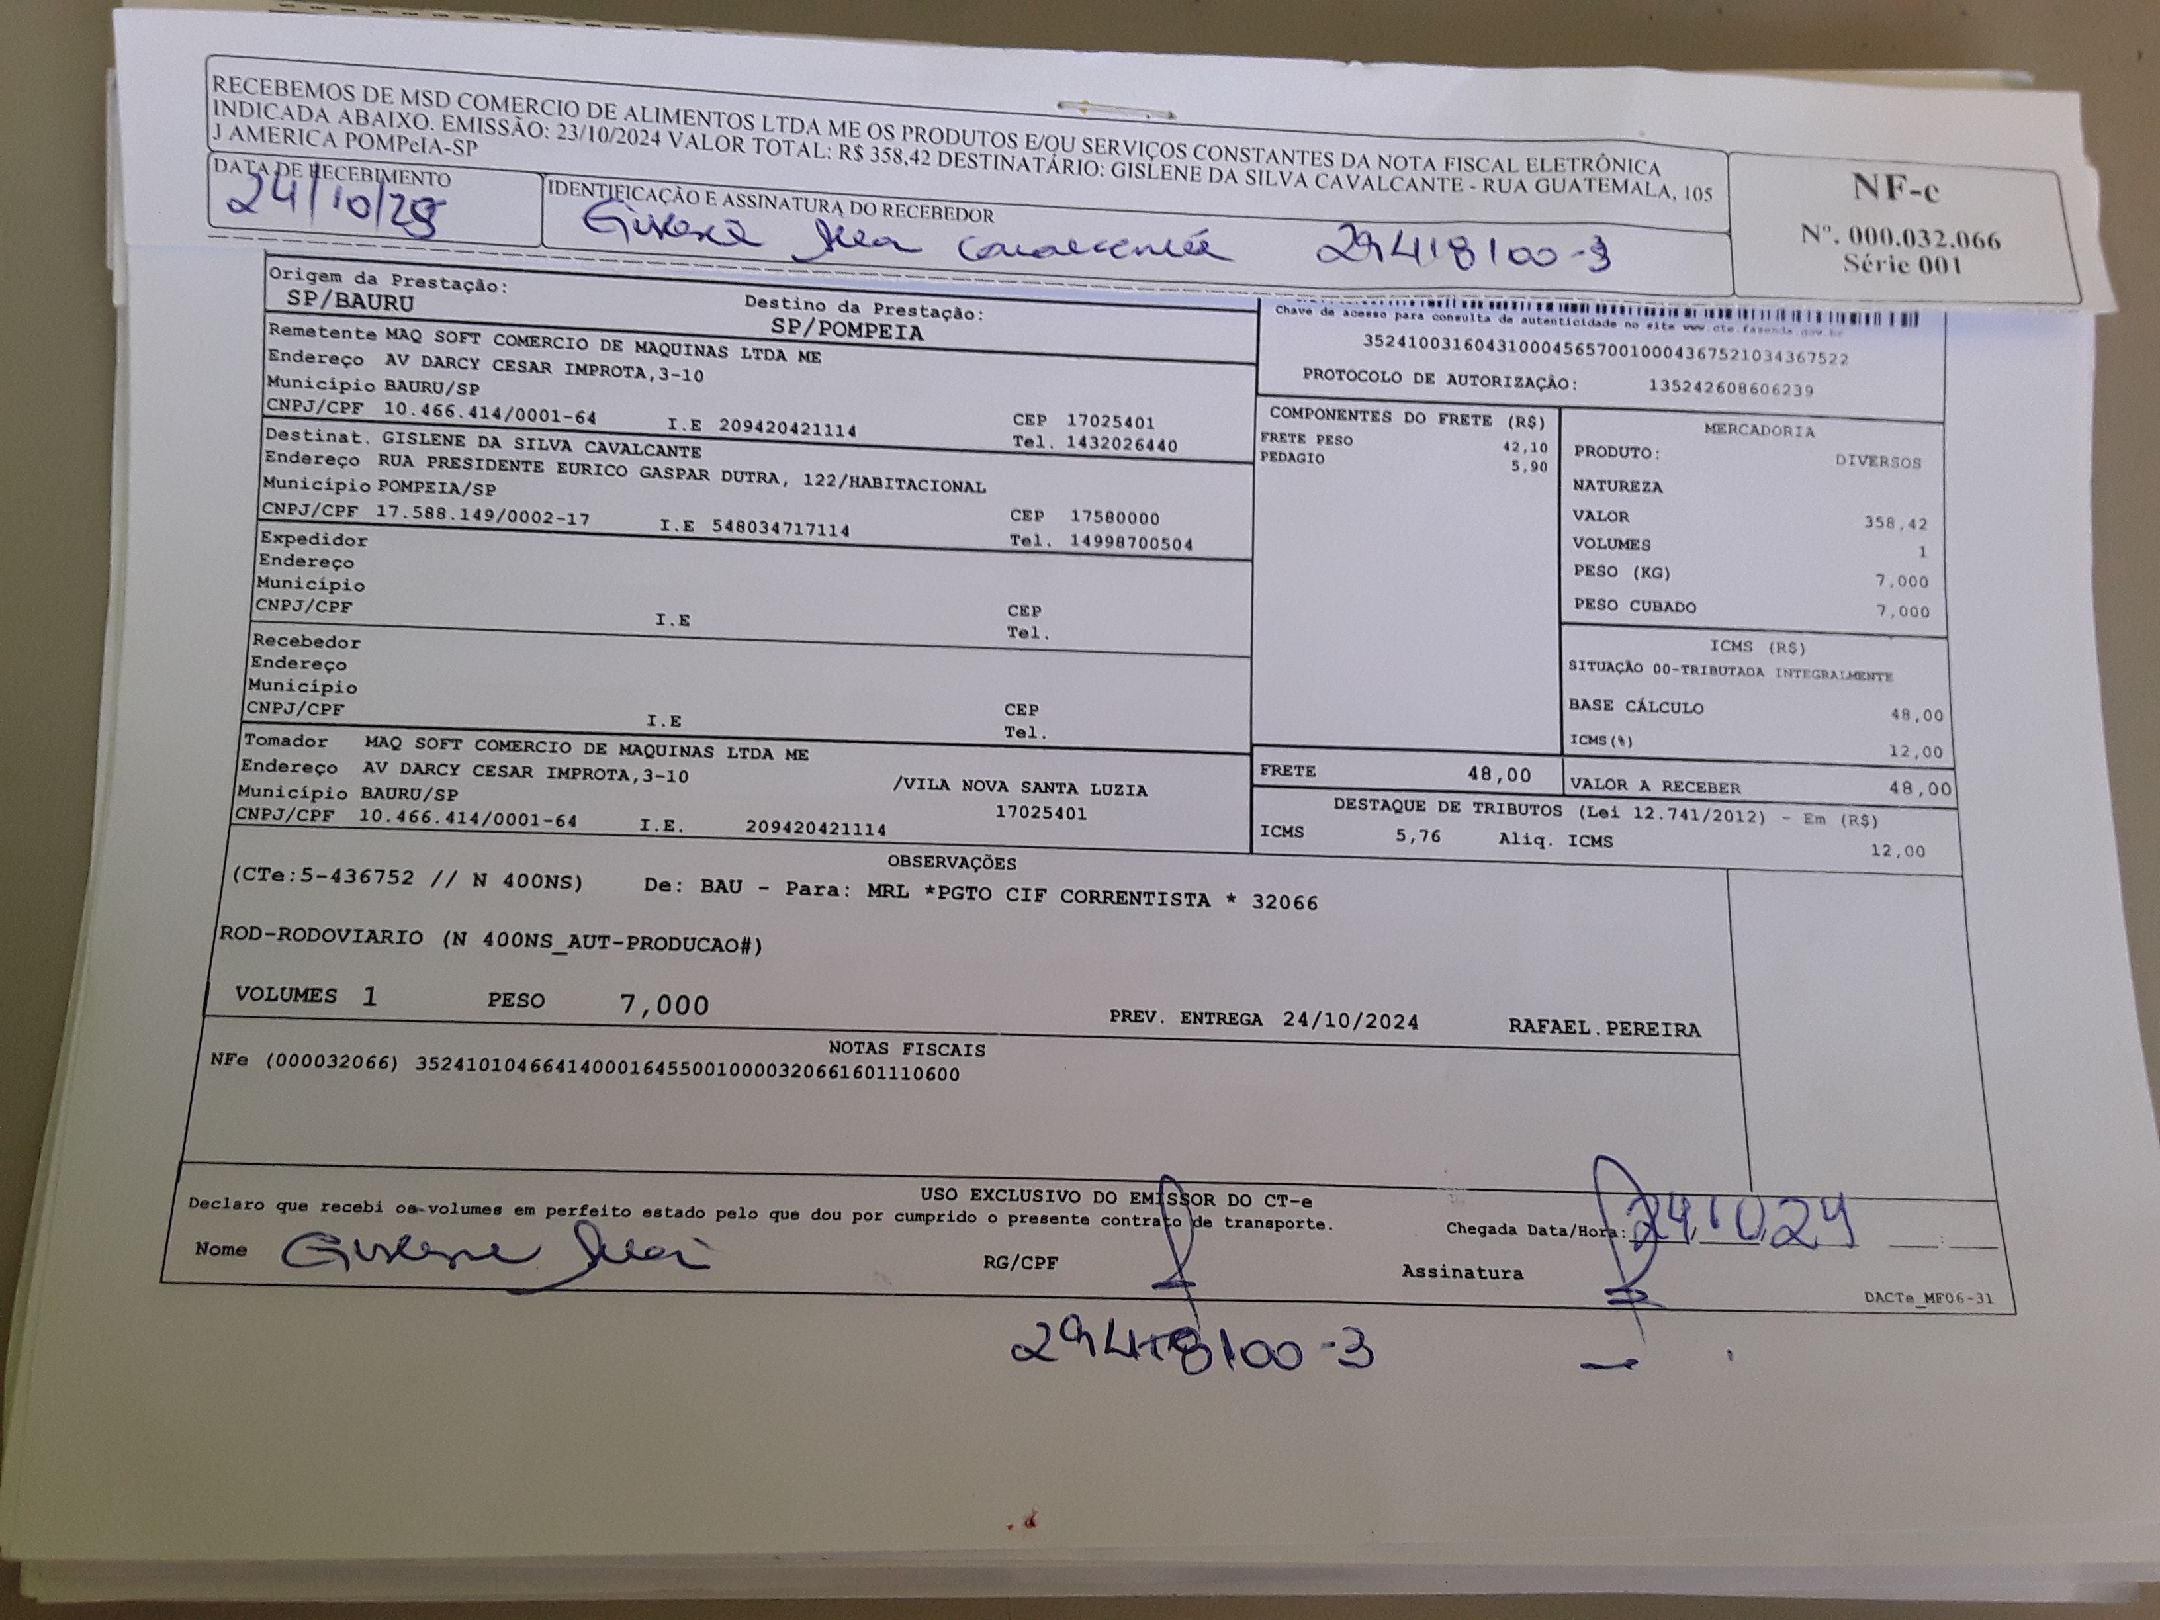 RECEBEMOS DE MSD COMERCIO DE ALIMENTOS LTDA ME OS PRODUTOS E/OU SERVIÇOS CONSTANTES DA NOTA FISCAL ELETRÔNICA
INDICADA ABAIXO. EMISSÃO: 23/10/2024 VALOR TOTAL: R$ 358,42 DESTINATÁRIO: GISLENE DA SILVA CAVALCANTE - RUA GUATEMALA, 105
J AMERICA POMPeIA-SP
NF-e
Nº. 000.032.066
Série 001
DATA DE RECEBIMENTO
24/10/25
IDENTIFICAÇÃO E ASSINATURA DO RECEBEDOR
29418100-3
Origem da Prestação:
SP/BAURU
Destino da Prestação:
SP/POMPEIA
Remetente MAQ SOFT COMERCIO DE MAQUINAS LTDA ME
Endereço AV DARCY CESAR IMPROTA,3-10
Município BAURU/SP
CNPJ/CPF 10.466.414/0001-64 I.E 209420421114 CEP 17025401
Tel. 1432026440
Destinat. GISLENE DA SILVA CAVALCANTE
Endereço RUA PRESIDENTE EURICO GASPAR DUTRA, 122/HABITACIONAL
Município POMPEIA/SP
CNPJ/CPF 17.588.149/0002-17 I.E 548034717114 CEP 17580000
Tel. 14998700504
Expedidor
Endereço
Município
CNPJ/CPF I.E CEP
Tel.
Recebedor
Endereço
Município
CNPJ/CPF I.E CEP
Tel.
Tomador MAQ SOFT COMERCIO DE MAQUINAS LTDA ME
Endereço AV DARCY CESAR IMPROTA,3-10 /VILA NOVA SANTA LUZIA
Município BAURU/SP 17025401
CNPJ/CPF 10.466.414/0001-64 I.E. 209420421114
Chave de acesso para consulta de autenticidade no site www.cte.fazenda.gov.br
35241003160431000456570010004367521034367522
PROTOCOLO DE AUTORIZAÇÃO: 135242608606239
COMPONENTES DO FRETE (R$)
FRETE PESO 42,10
PEDAGIO 5,90
MERCADORIA
PRODUTO: DIVERSOS
NATUREZA
VALOR 358,42
VOLUMES 1
PESO (KG) 7,000
PESO CUBADO 7,000
ICMS (R$)
SITUAÇÃO 00-TRIBUTADA INTEGRALMENTE
BASE CÁLCULO 48,00
ICMS(%) 12,00
FRETE 48,00
VALOR A RECEBER 48,00
DESTAQUE DE TRIBUTOS (Lei 12.741/2012) - Em (R$)
ICMS 5,76 Aliq. ICMS 12,00
OBSERVAÇÕES
(CTe:5-436752 // N 400NS) De: BAU - Para: MRL *PGTO CIF CORRENTISTA * 32066
ROD-RODOVIARIO (N 400NS_AUT-PRODUCAO#)
VOLUMES 1 PESO 7,000 PREV. ENTREGA 24/10/2024 RAFAEL.PEREIRA
NOTAS FISCAIS
NFe (000032066) 35241010466414000164550010000320661601110600
USO EXCLUSIVO DO EMISSOR DO CT-e
Declaro que recebi os volumes em perfeito estado pelo que dou por cumprido o presente contrato de transporte.
Chegada Data/Hora: 24,10,24 __:__
Nome RG/CPF Assinatura
DACTe_MF06-31
29418100-3